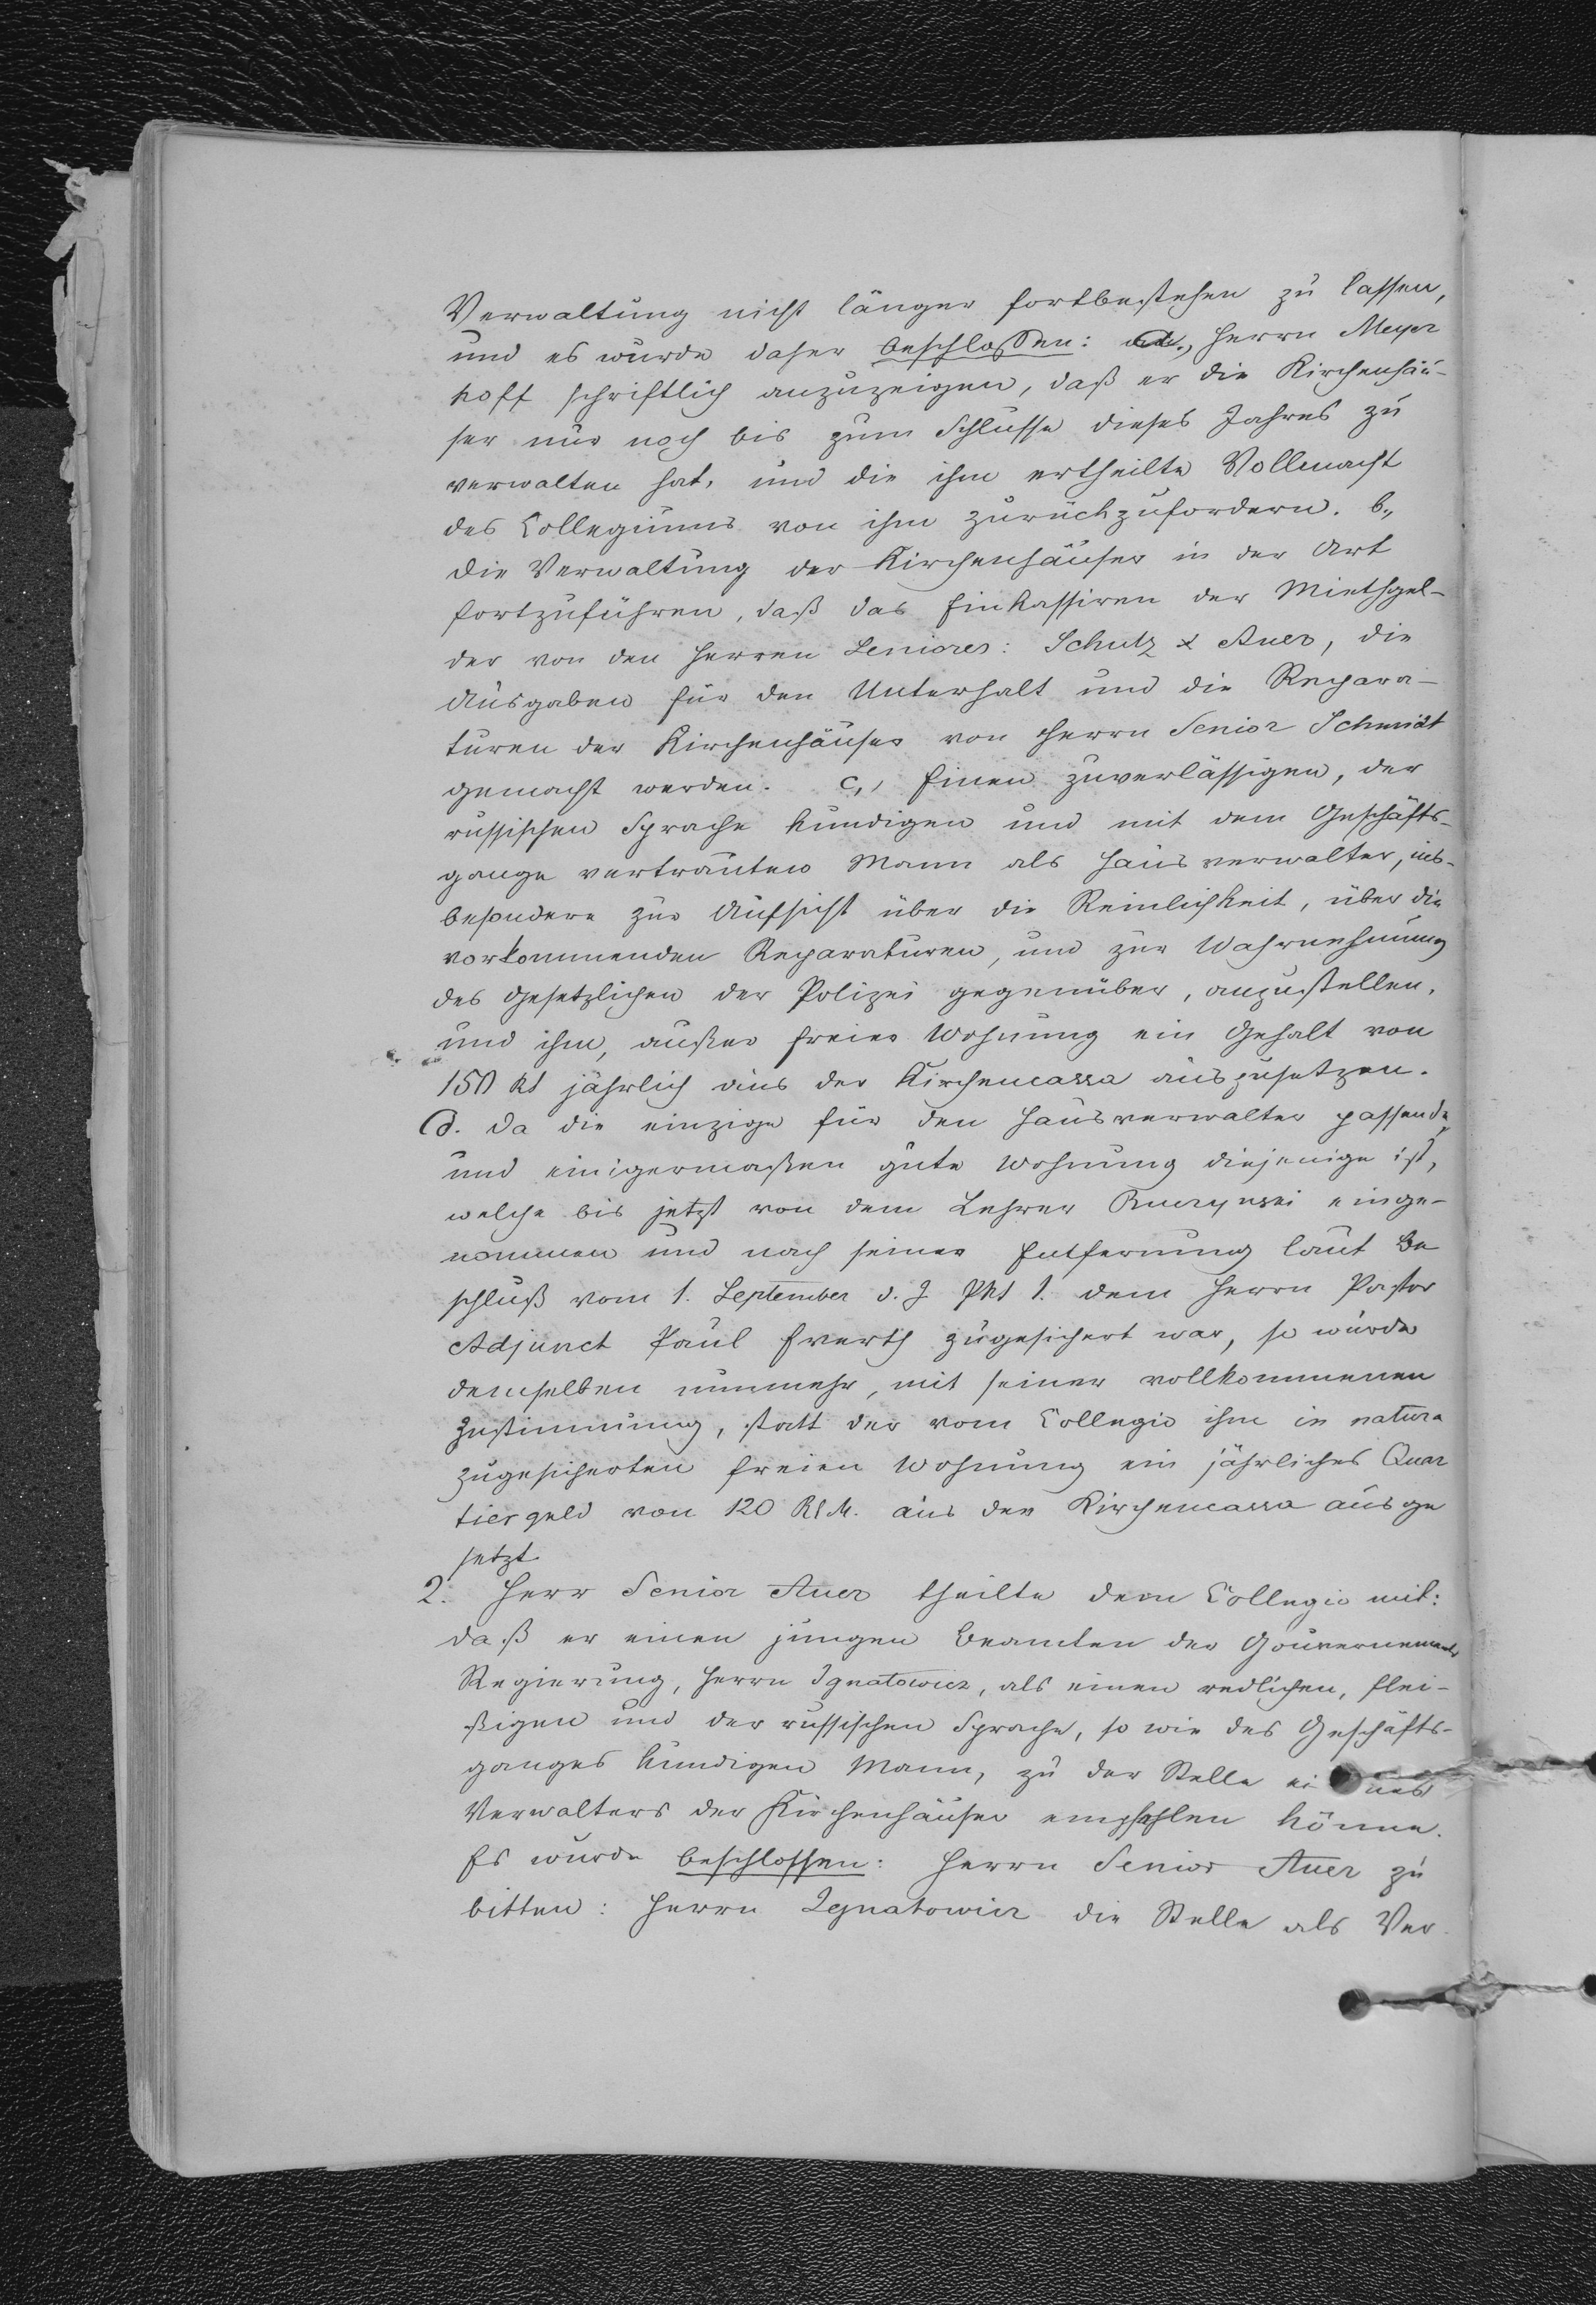 Verwaltung nicht länger fortbestehen zu lassen,
und es wurde daher beschlossen: a., Herrn Meyer
hoff schriftlich anzuzeigen, daß er die Kirchenhäu-
ser nur noch bis zum Schlusse dieses Jahres zu
verwalten hat, und die ihm ertheilte Vollmacht
des Collegiums von ihm zurückzufordern. b.,
die Verwaltung der Kirchenhäuser in der Art
fortzuführen, daß das Einkassiren der Miethgel-
der von den Herren Seniores: Schulz & Auer, die
Ausgaben für den Unterhalt und die Repara-
turen der Kirchenhäuser von Herrn Senior Schmidt
gemacht werden. c., Einen zuverlässigen, der
russischen Sprache kundigen und mit dem Geschäfts-
gange vertrauten Mann als Hausverwalter, ins-
besondere zur Aufsicht über die Reinlichkeit, über die
vorkommenden Reparaturen, und zur Wahrnehmung
des Gesetzlichen der Polizei gegenüber, anzustellen,
und ihm, außer freier Wohnung ein Gehalt von
150 Rs jährlich aus der Kirchencassa auszusetzen.
d. Da die einzige für den Hausverwalter passende
und einigermaßen gute Wohnung diejenige ist,
welche bis jetzt von dem Lehrer einge-
nommen und nach seiner Entfernung laut Be
schluß vom 1. September d. J. Pkt 1. dem Herrn Pastor
Adjunct Paul Everth zugesichert war, so wurde
demselben nunmehr, mit seiner vollkommenen
Zustimmung, statt der vom Collegio ihm in natura
zugesicherten freien Wohnung ein jährliches Quar
tiergeld von 120 Rs. aus der Kirchencassa ausge
setzt.
2. Herr Senior Auer theilte dem Collegio mit:
daß er einen jungen Beamten der Gouvernements
Regierung, Herrn Ignatowicz, als einen redlichen, flei-
ßigen und der russischen Sprache, so wie des Geschäfts-
ganges kundigen Mann, zu der Stelle eines
Verwalters der Kirchenhäuser empfehlen könne.
Es wurde beschlossen: Herrn Senior Auer zu
bitten: Herrn Ignatowicz die Stelle als Ver